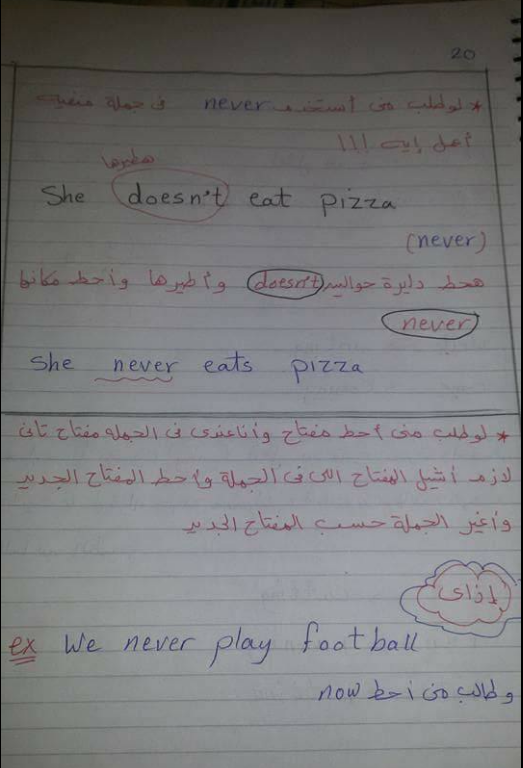 20
* لو طلب منى أستخدم never فى جملة منفيه
أعمل إيه !!!
هطيرها
She doesn't eat pizza
(never)
هحط دايرة حوالين doesn't وأطيرها وأحط مكانها
never
She never eats pizza
* لو طلب منى أحط مفتاح وأنا عندى فى الجملة مفتاح تانى
لازم أشيل المفتاح اللى فى الجملة وأحط المفتاح الجديد
وأغير الجملة حسب المفتاح الجديد
إزاى
ex We never play football
وطالب منى أحط now